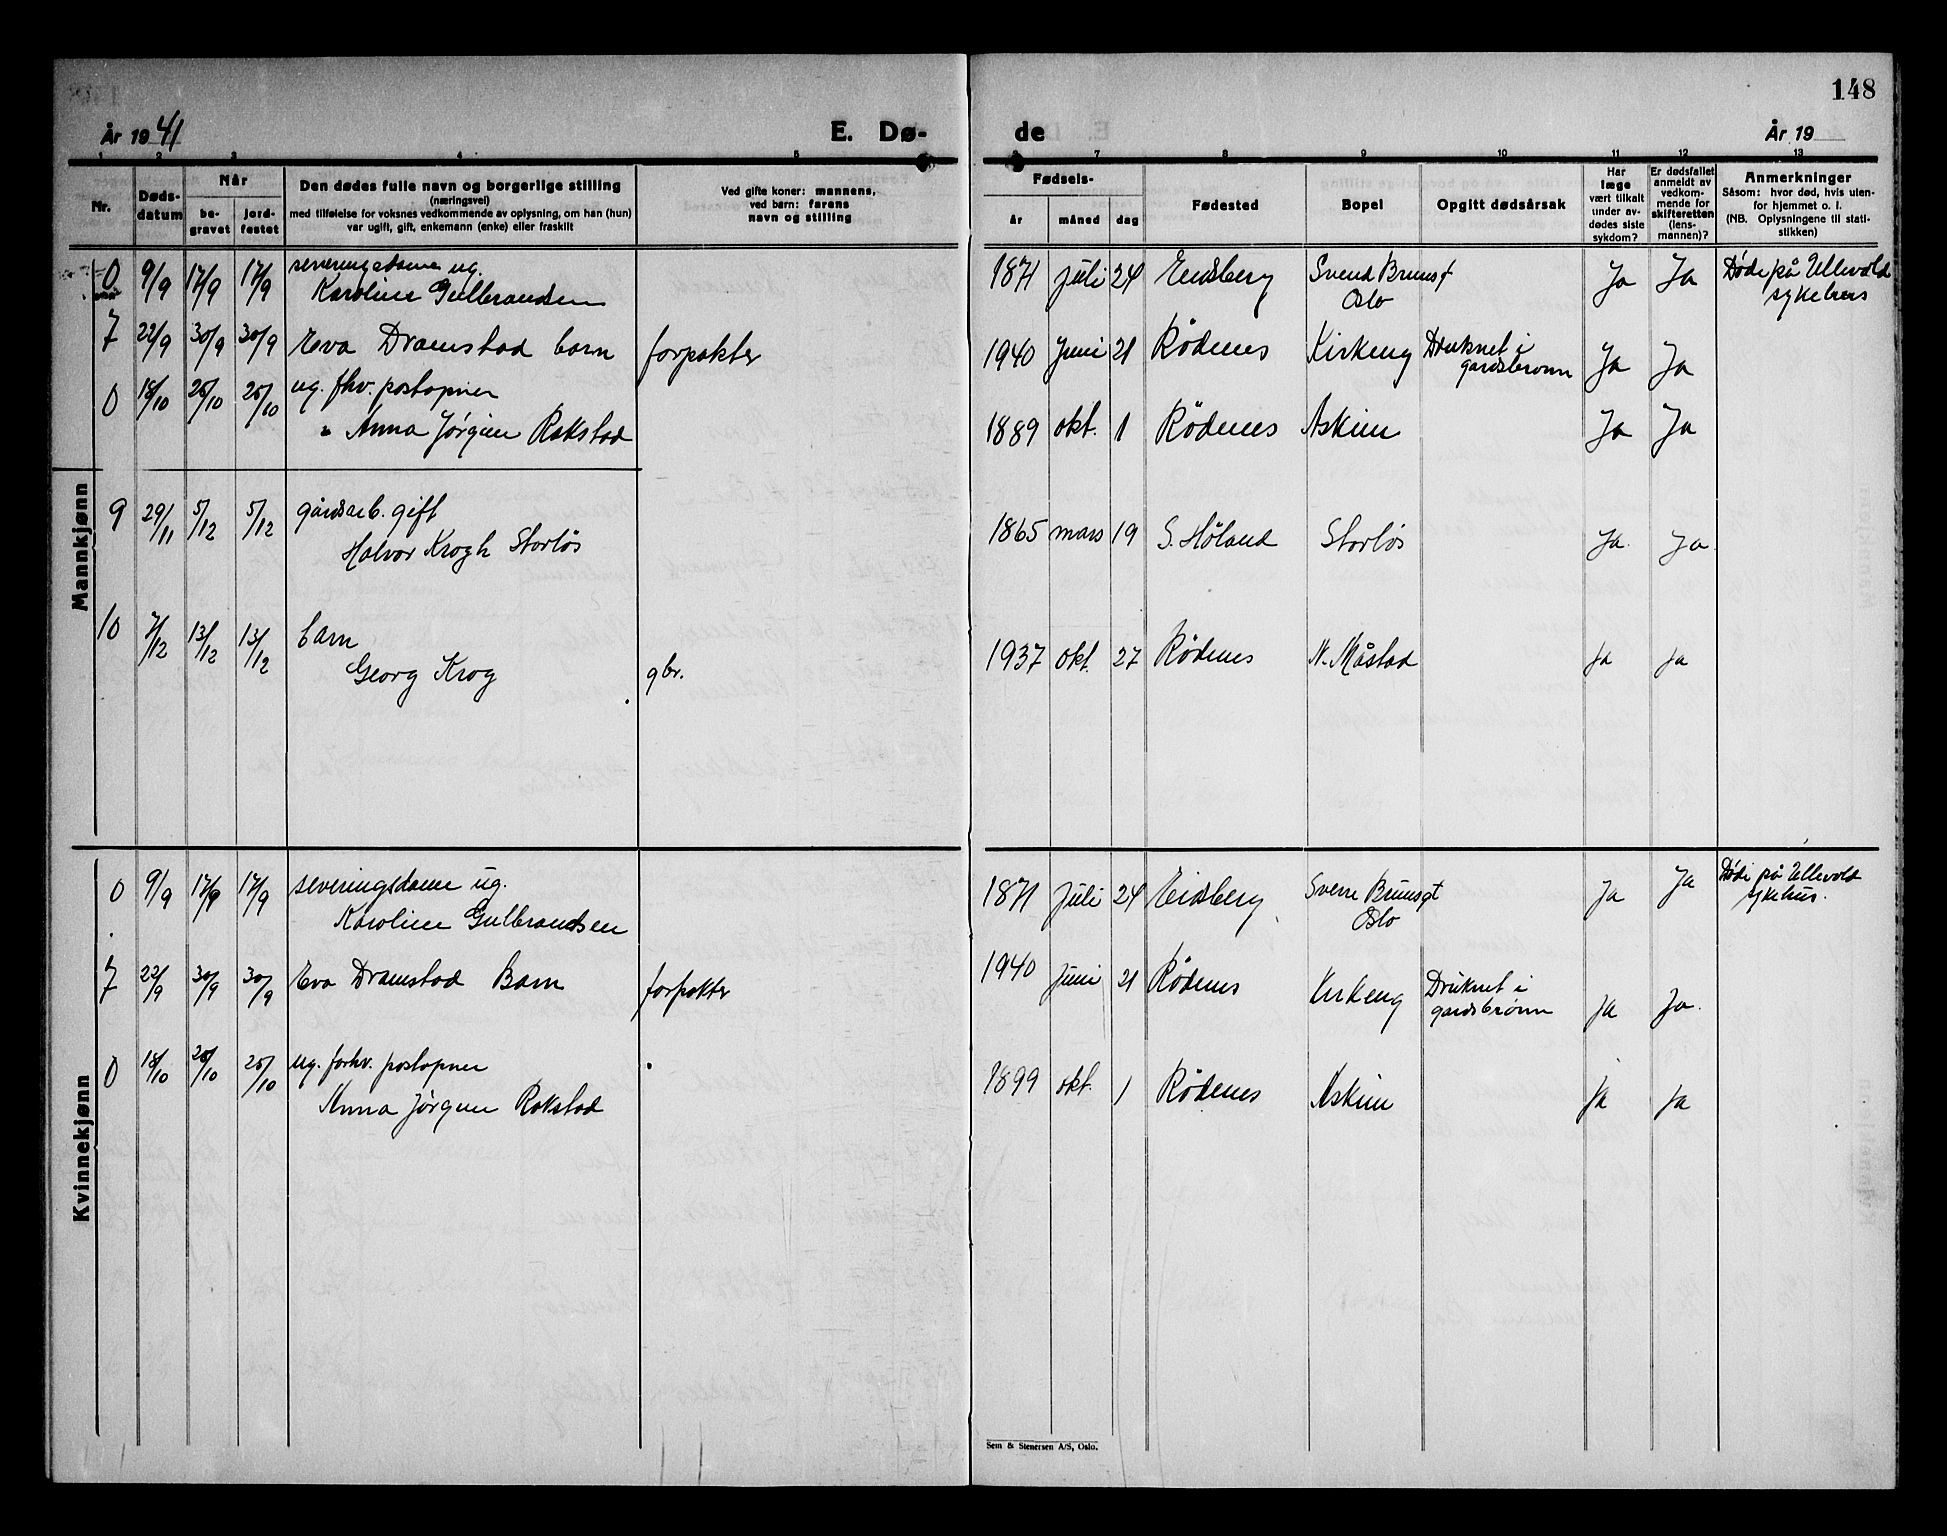 148
År 1941 E. Dø- de År 19
1 2 3 4 5 6 7 8 9 10 11 12 13
Nr. Døds-datum Når be-gravet jord-festet
Den dødes fulle navn og borgerlige stilling
(næringsvei)
med tilføielse for voksnes vedkommende av oplysning, om han (hun)
var ugift, gift, enkemann (enke) eller fraskilt
Ved gifte koner: mannens,
ved barn: farens
navn og stilling
Fødsels-
år måned dag
Fødested
Bopel
Opgitt dødsårsak
Har
læge
vært tilkalt
under av-
dødes siste
sykdom?
Er dødsfallet
anmeldt av
vedkom-
mende for
skifteretten
(lens-
mannen)?
Anmerkninger
Såsom: hvor død, hvis uten-
for hjemmet o. l.
(NB. Oplysningene til stati-
stikken)
0 9/9 17/9 17/9 ug.
Karoline Gulbrandsen
1871 juli 24 Eidsberg Svend Brunsgt Ja Ja Døde på Ullevold
Oslo sykehus
7 22/9 30/9 30/9 Eva Dramstad barn forpakter 1940 Juni 21 Rødenes Kirkeng Druknet i Ja Ja
gardsbrønn
0 18/10 25/10 25/10 ug. fhv. postopner
" Anna Jørgine Rakstad 1889 okt. 1 Rødenes Askim Ja Ja
Mannkjønn
9 29/11 5/12 5/12 gårdsarb. gift
Halvor Krogh Storløs 1865 mars 19 S. Høland Storløs Ja. Ja.
10 7/12 13/12 13/12 barn
Georg Krog gbr. 1937 okt. 27 Rødenes N. Måstad Ja Ja
Kvinnekjønn
0 9/9 17/9 17/9 severingsdame ug.
Karoline Gulbrandsen
1871 Juli 24 Eidsberg Sverre Brunsgt Ja Ja Døde på Ullevold
Oslo sykehus.
7 22/9 30/9 30/9 Eva Dramstad Barn forpakter 1940 Juni 21 Rødenes Kirkeng Druknet i Ja Ja.
gardsbrønn
0 18/10 25/10 25/10 ug. forhv. postopner
Anna Jørgine Rakstad 1899 okt. 1 Rødenes Askim Ja Ja
Sem & Stenersen A/S, Oslo.